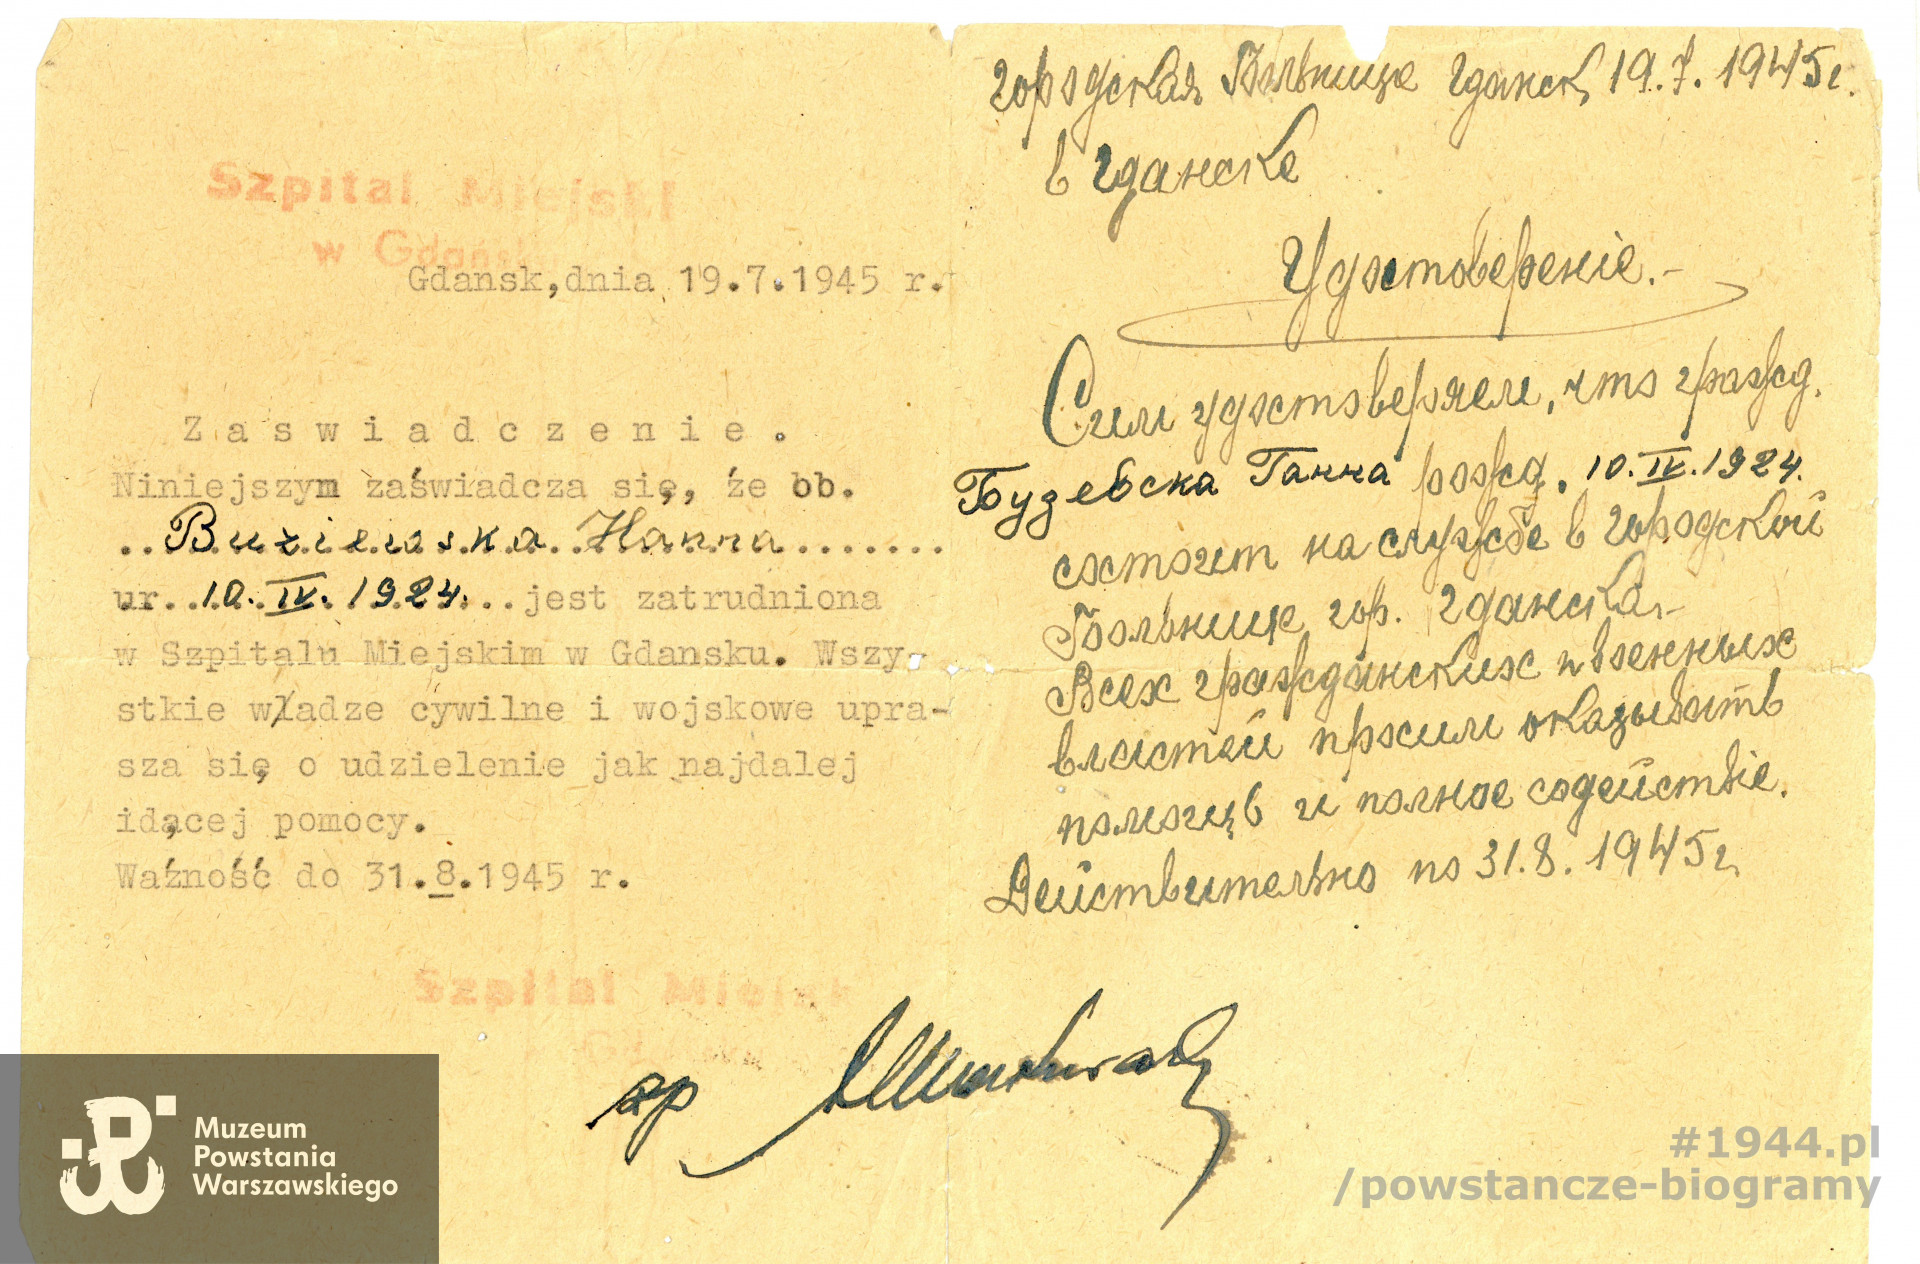 Szpital Miejski
w Gdańsku
Gdansk,dnia 19.7.1945 r.
Z a s w i a d c z e n i e .
Niniejszym zaświadcza się, że ob.
..Buziewska Hanna.......
ur..10.IV.1924...jest zatrudniona
w Szpitalu Miejskim w Gdansku. Wszy-
stkie władze cywilne i wojskowe upra-
sza się o udzielenie jak najdalej
idącej pomocy.
Ważność do 31.8.1945 r.
Szpital Miejsk
Gdańsku
zp
городская Больнице Гданск, 19.7.1945г.
в Гданске
Удостоверение.-
Сим удостоверяем, что гражд.
Будевска Ганна рожд. 10.IV.1924.
состоит на службе в городской
Больнице гор. Гданска.-
Всех гражданских и военных
властей просим оказывать
помощь и полное содействие.
Действительно по 31.8.1945г.
Muzeum
Powstania
Warszawskiego
#1944.pl
/powstancze-biogramy